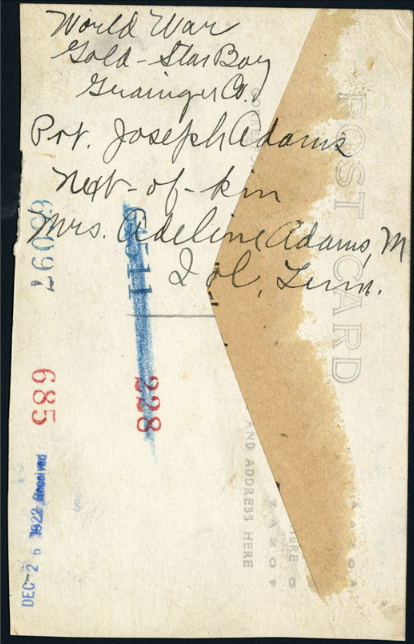 World War
Gold-Star Boy
Grainger Co.
Pvt. Joseph Adams
Next-of-kin
Mrs. Adeline Adams, M
Idol, Tenn.
POST CARD
AND ADDRESS HERE
HERE
69097
685
228
DEC-2 6 1922 Received